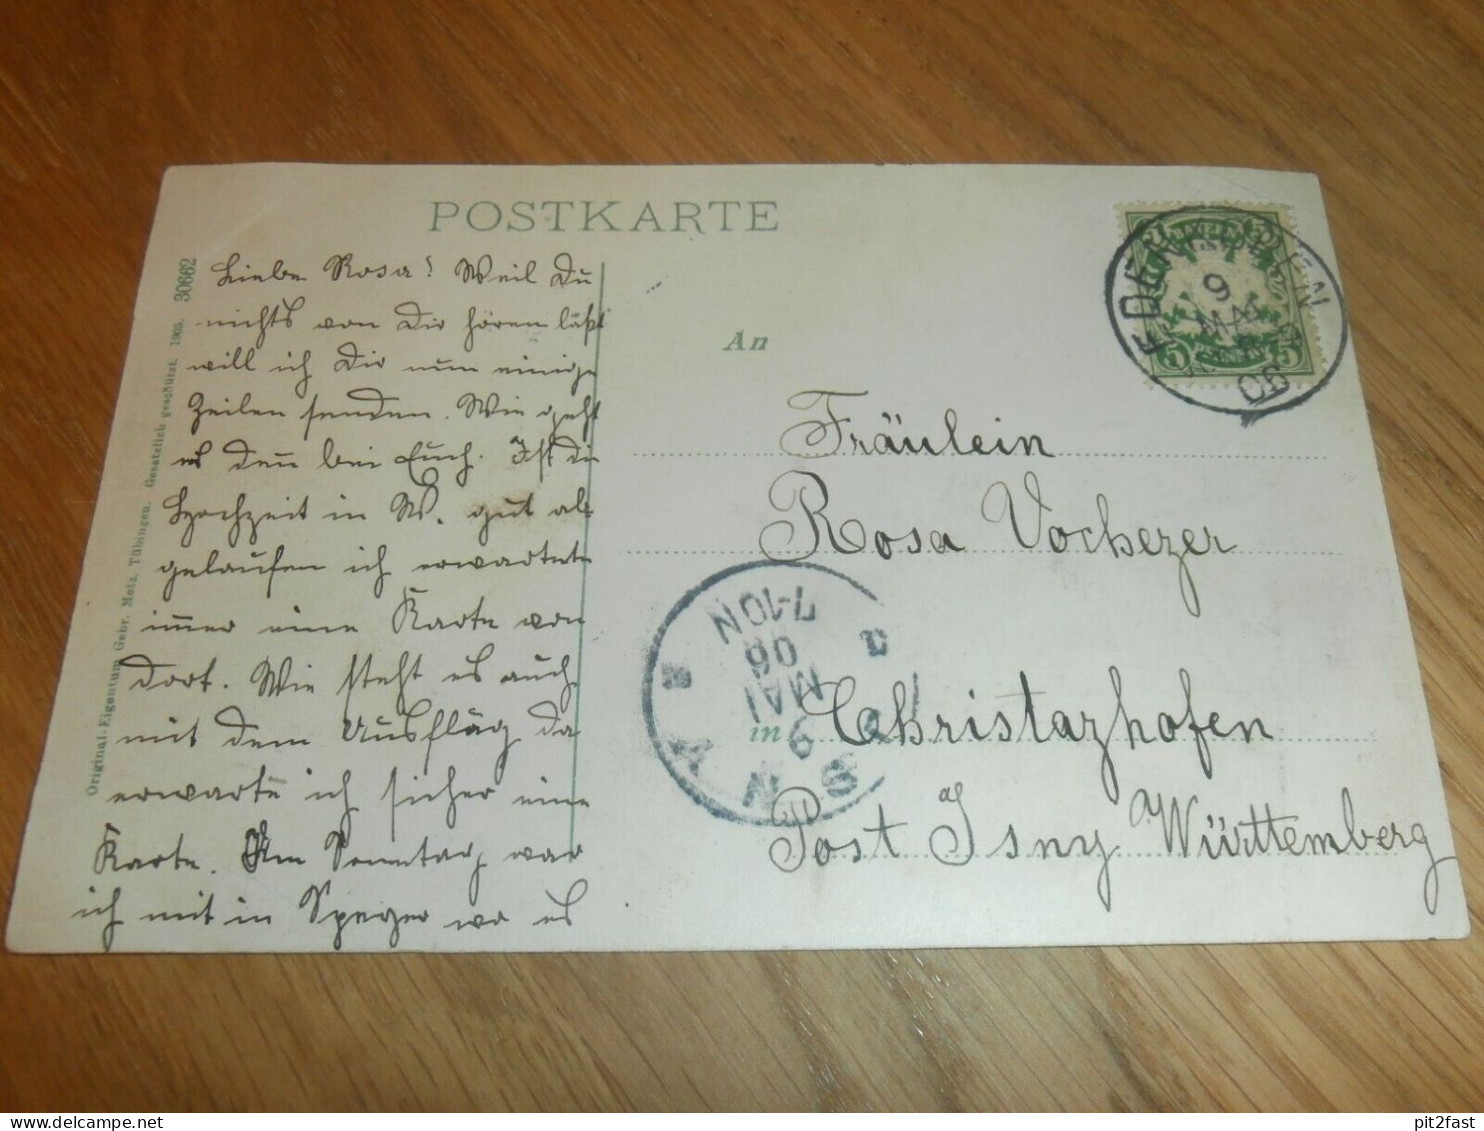 POSTKARTE
Liebe Rosa! Weil Du
nichts von Dir hören läßt
will ich Dir nun einige
Zeilen senden. Wie geht
es den bei Euch. Ist die
Hochzeit in W. gut ab-
gelaufen ich erwartete
immer eine Karte von
dort. Wie steht es auch
mit dem Ausflug da
erwarte ich sicher eine
Karte. Am Sonntag war
ich mit in Speyer wo es
Original-Eigentum Gebr. Metz, Tübingen. Gesetzlich geschützt. 1905. 30662
An
Fräulein
Rosa Vochezer
in Christazhofen
Post Isny Württemberg
9
MAI
06
5 5
7-10N
06
MAI
9
ISNY